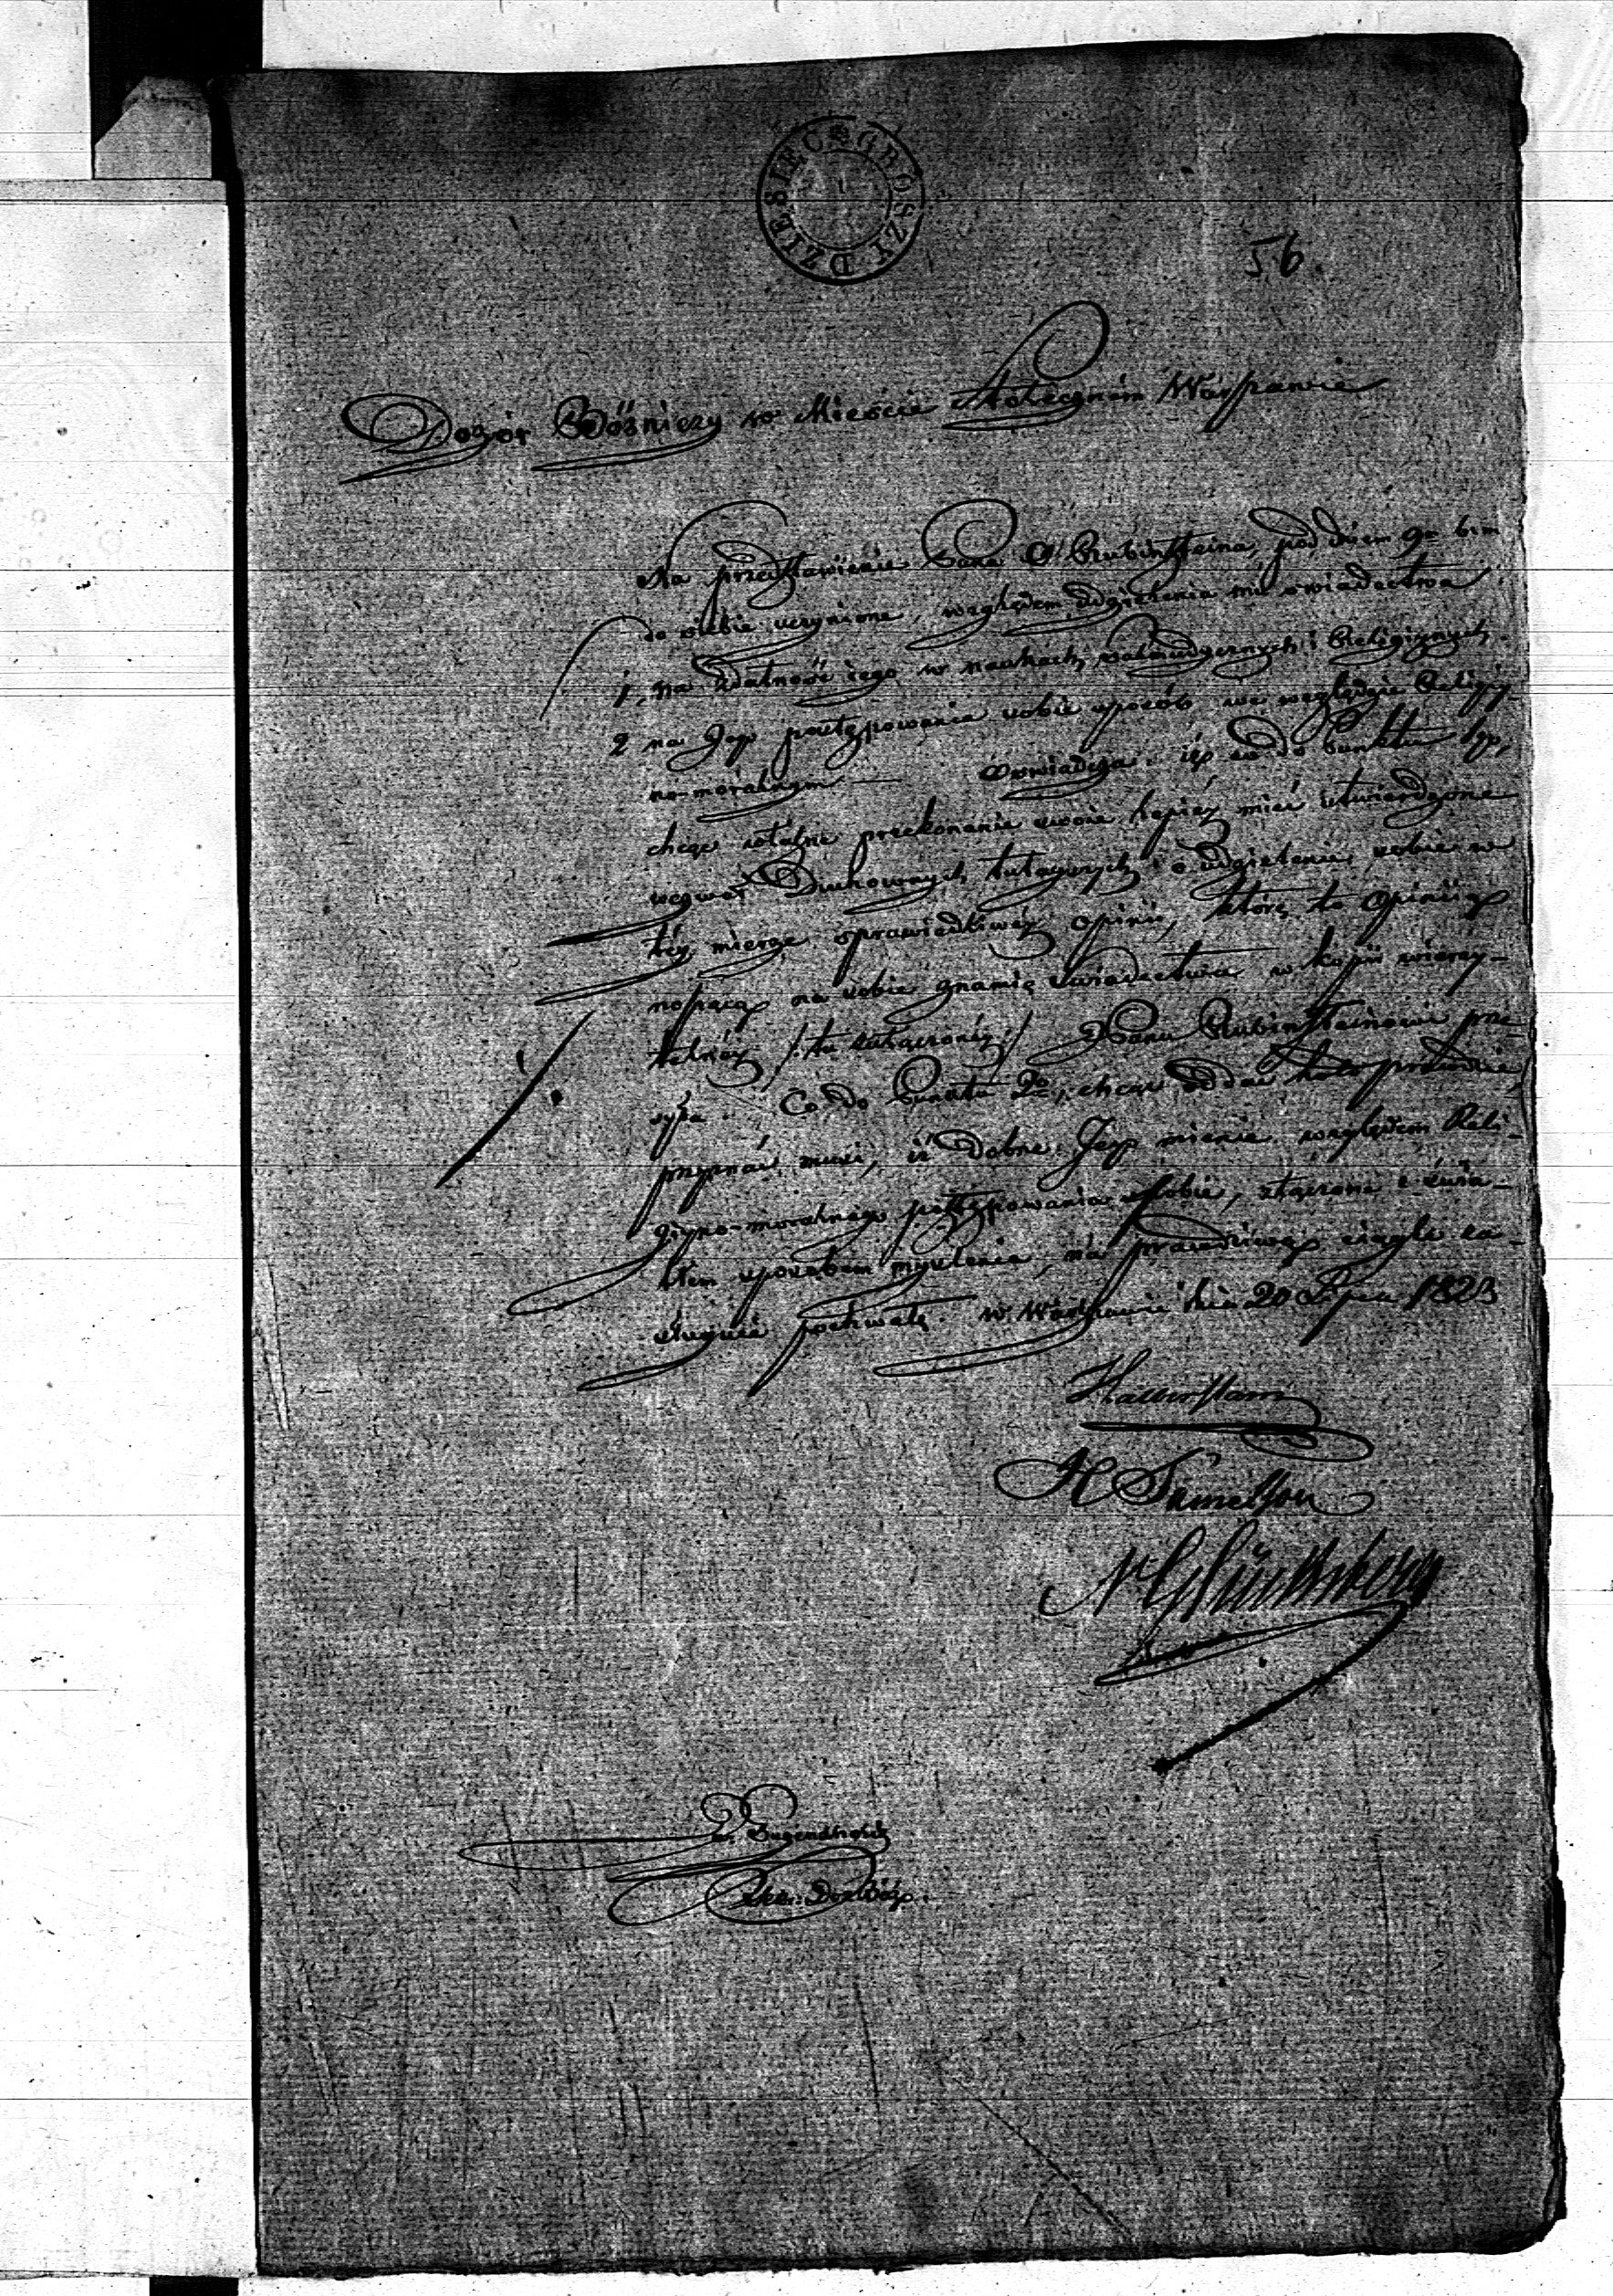 GROSZY DZIESIĘC
56.
Dozór Bóżniczy w Mieście Stołecznem Warszawie
Na przedstawienie Pana A Rubinszteina, pod dniem 9m b: m
do siebie uczynione, względem udzielenia mu swiadectwa
1, na zdatność iego w naukach talmudycznych i Religiynych.
2 na Jego postępowania sobie sposób we względzie Religiy-
no-moralnym — Oswiadcza: iż co do Punktu 1go,
chcąc istotne przekonanie swoie lepiéy mieć utwierdzone
wezwał Duchownych tutayszych o udzielenie sobie w
téy mierze sprawiedliwéy opinii, którą to Opiniią
noszącą na sobie znamię świadectwa w kopii wierzy-
telnéy /: tu załączonéy :/ Panu Rubinszteinowi prze-
syła. Co do Punktu 2o, chcąc oddać hołd prawdzie,
przyznać musi, iż dobre Jego mienie względem Reli-
giyno-moralnego postępowania sobie, złączone z świa-
tłem sposobem myslenia, na prawdziwą ciągle za-
sługuie pochwałę. w Warszawie dnia 20 Lipca 1823
Halberstam
H Samelson
N Glücksberg
Sekr: Doz: Bóż: